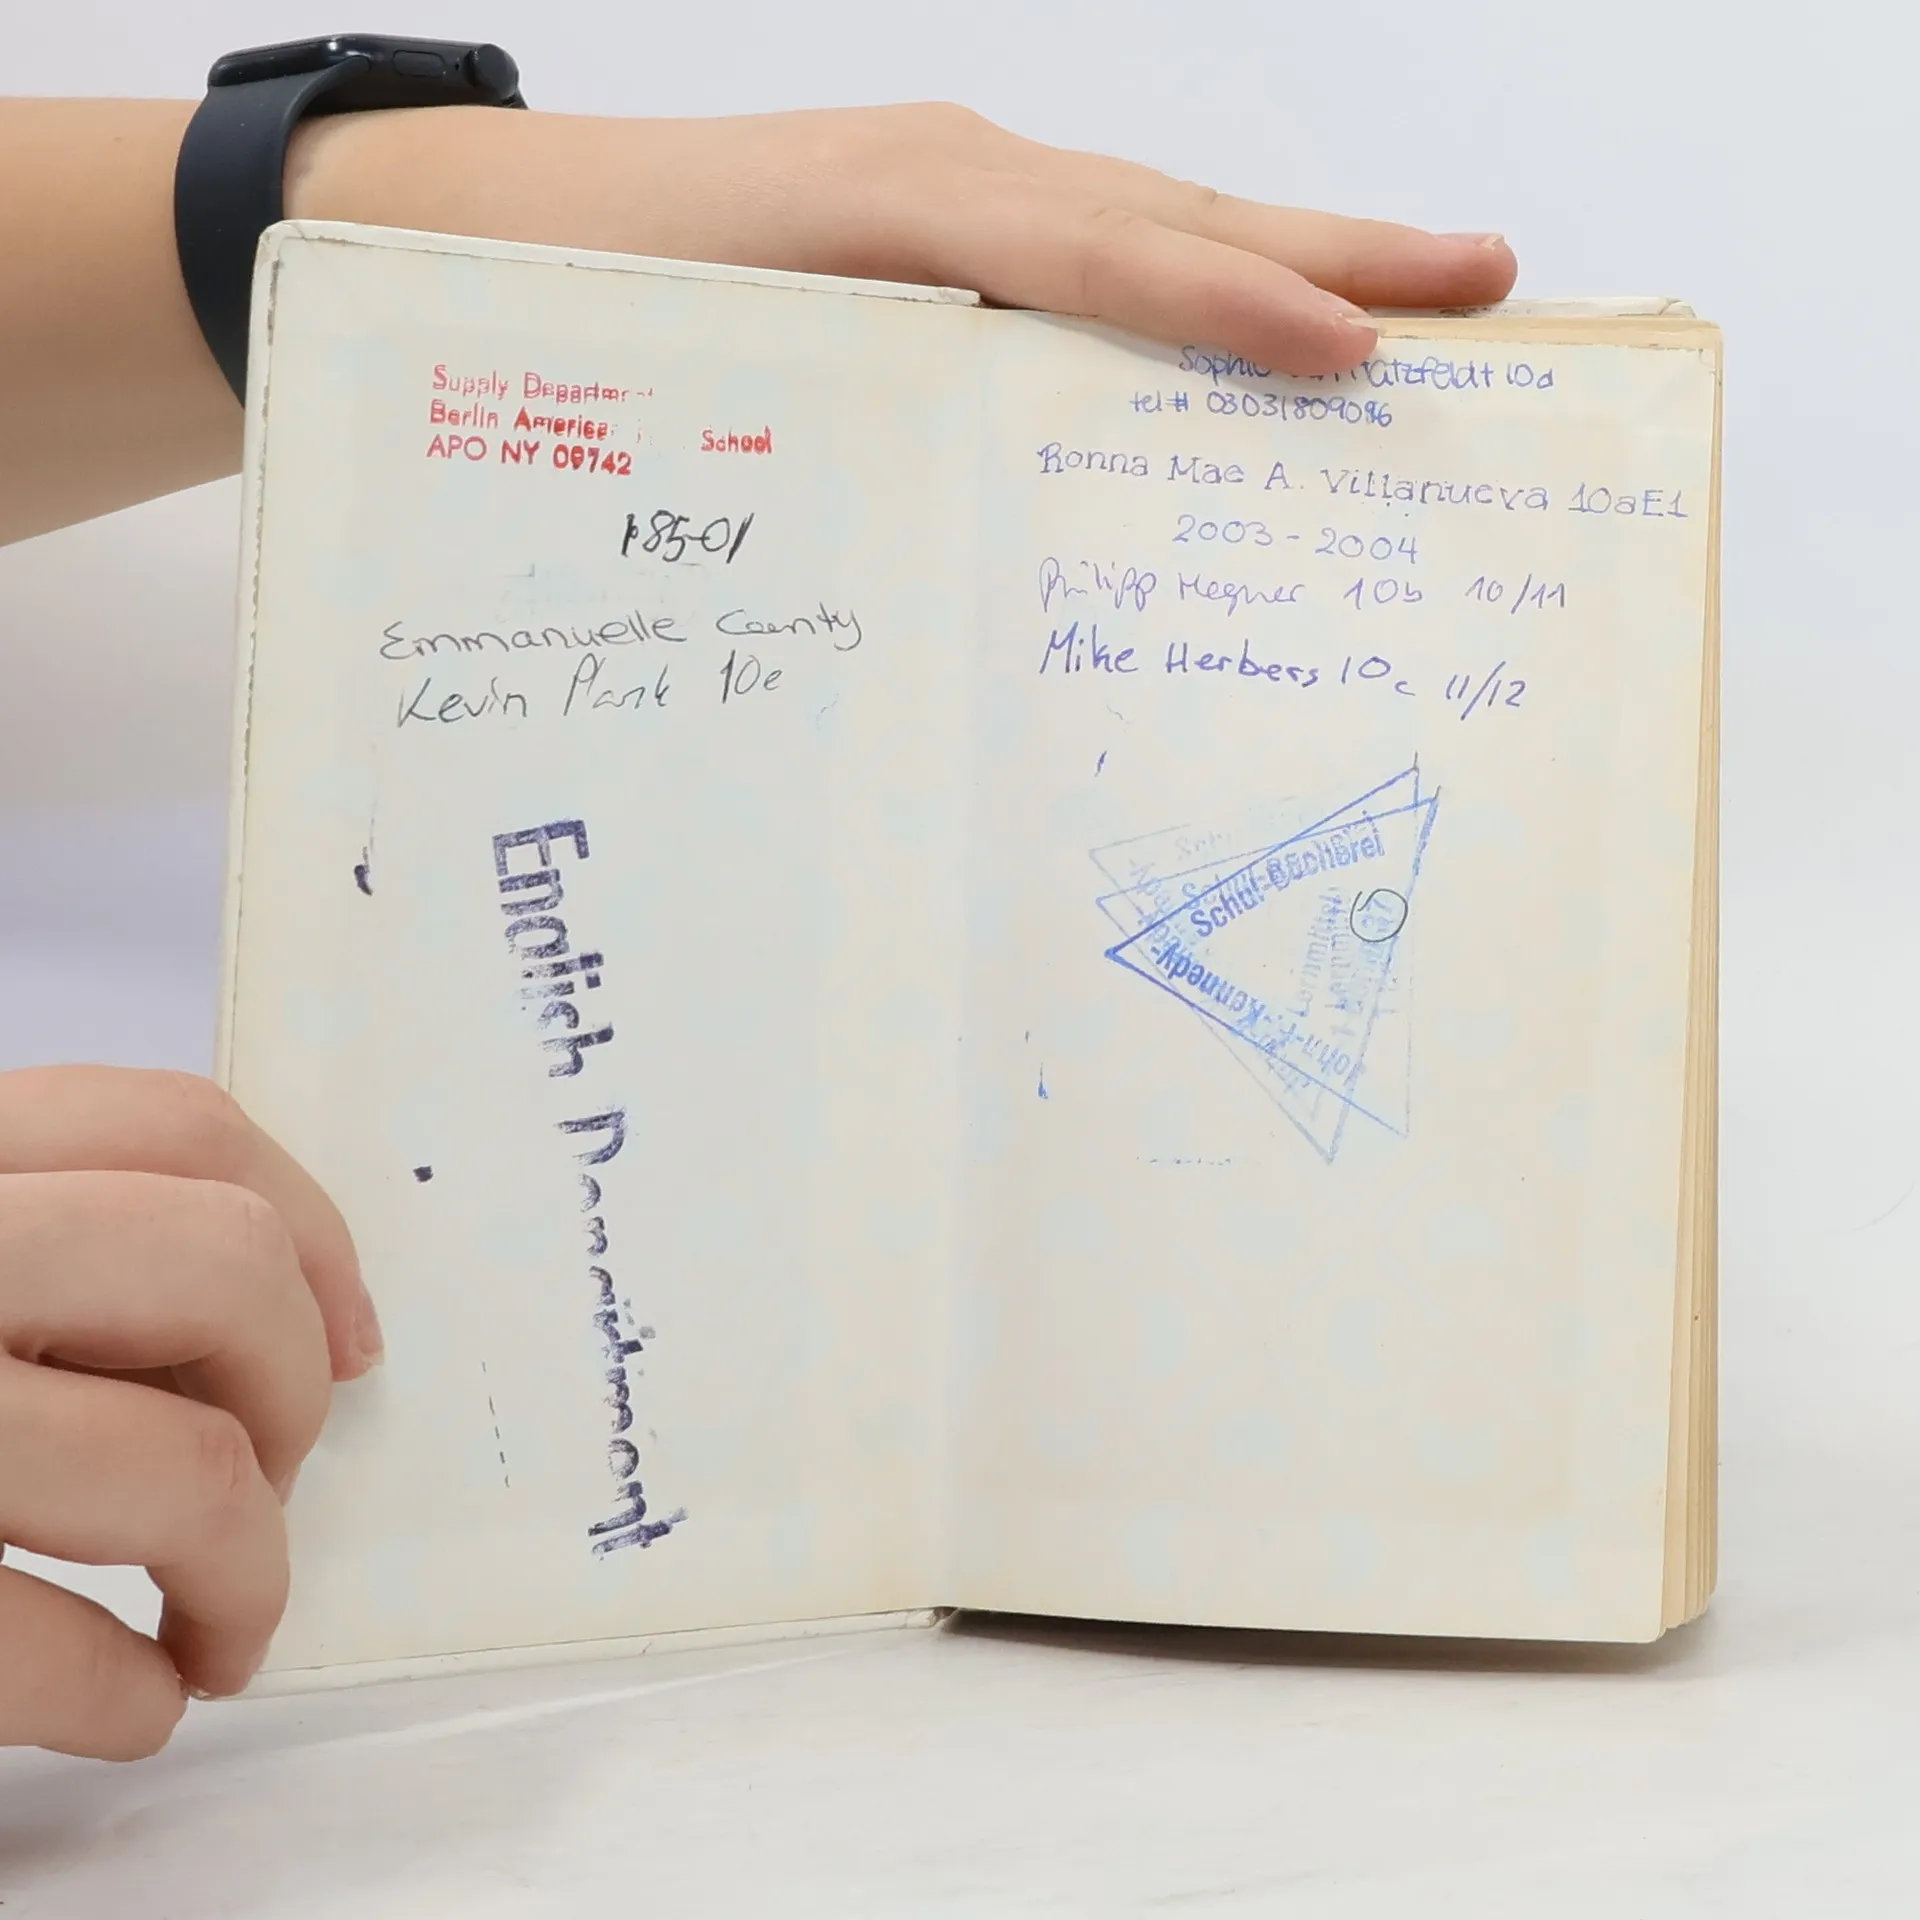 Supply Department
Berlin American School
APO NY 09742
185-01
Emmanuelle County
Kevin Park 10e
English Department
Sophie Hatzfeldt 10d
tel# 03031809096
Ronna Mae A. Villanueva 10aE1
2003-2004
Philipp Hegner 10b 10/11
Mike Herbers 10c 11/12
Schul-Bücherei
John-F.-Kennedy-